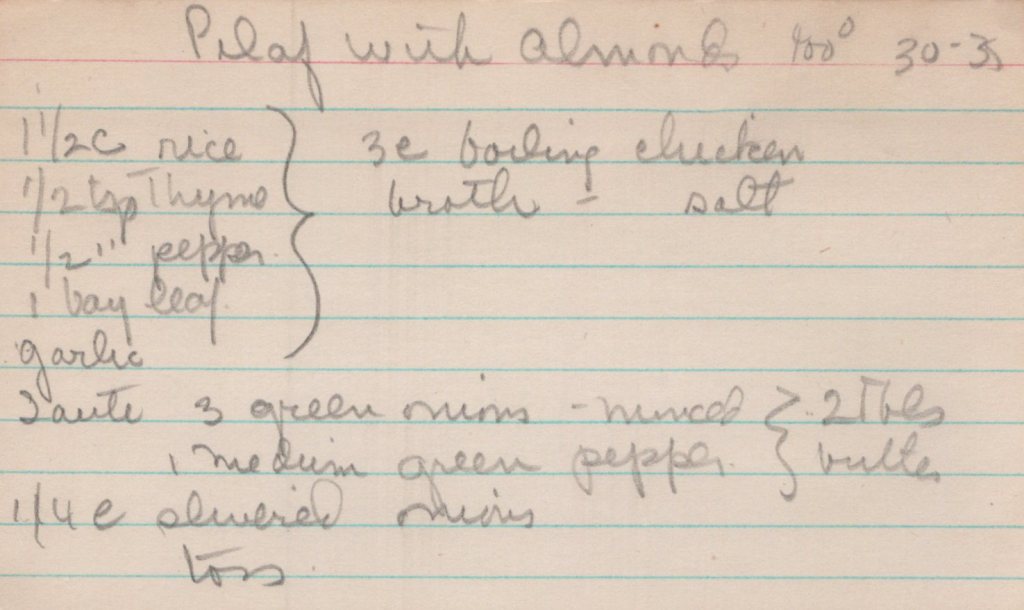 Pilaf with Almonds 400° 30-35
1 1/2 c rice } 3c boiling chicken
1/2 tsp Thyme broth - salt
1/2 " pepper
1 bay leaf
garlic
Saute 3 green onions - minced } 2 Tbls
1 medium green pepper butter
1/4 c slivered onions
toss